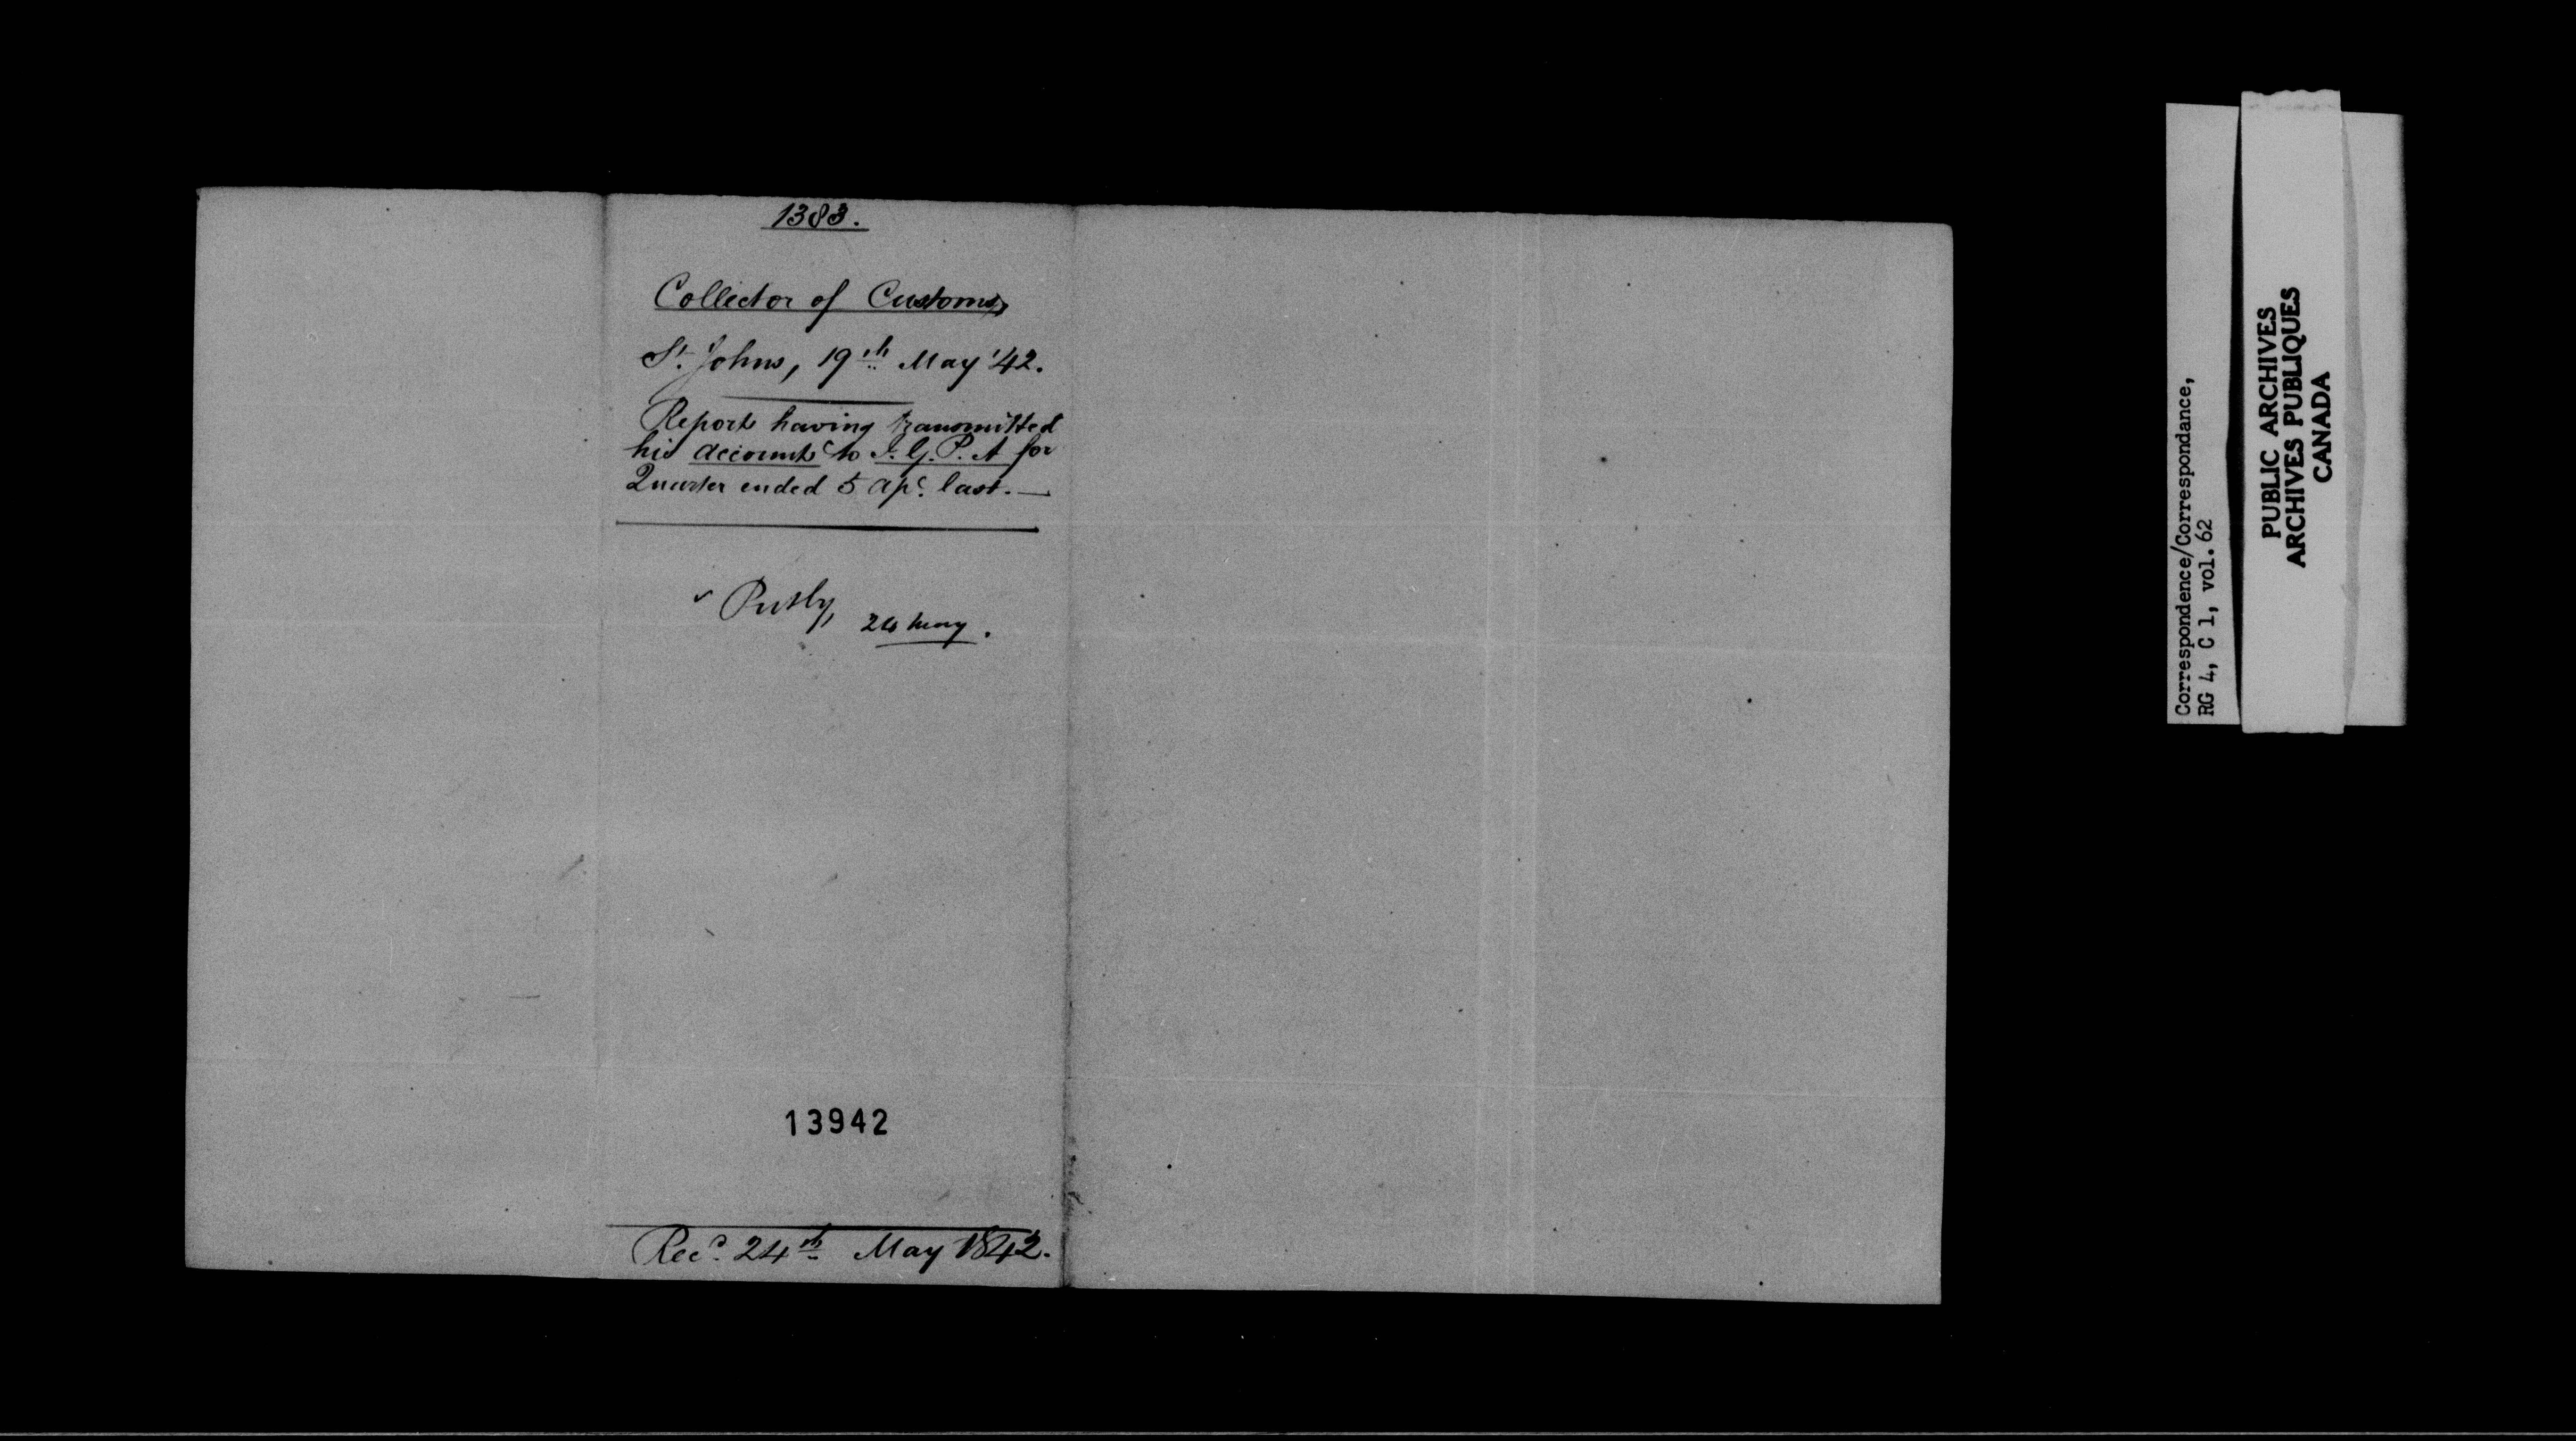 1383.
Collector of Customs,
St. Johns, 19th May '42.
Reports having transmitted
his accounts to I. G. P. A for
Quarter ended 5 Apl. last. —
24 May.
13942
Recd. 24th May 1842.
Correspondence/Correspondance,
RG 4, C 1, vol.62
PUBLIC ARCHIVES
ARCHIVES PUBLIQUES
CANADA